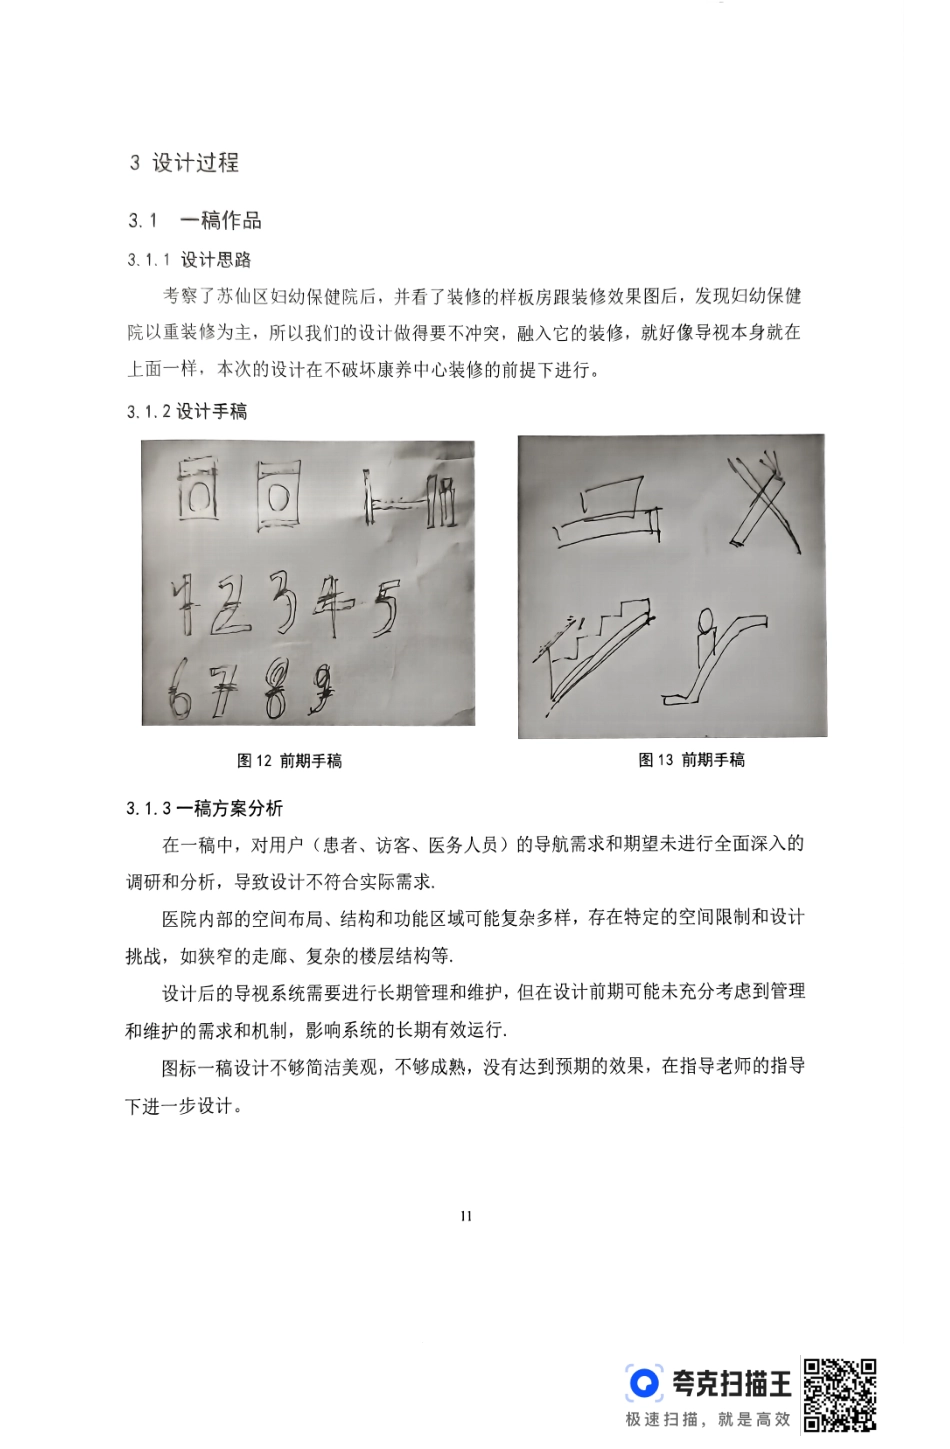 3 设计过程
3.1 一稿作品
3.1.1 设计思路
考察了苏仙区妇幼保健院后，并看了装修的样板房跟装修效果图后，发现妇幼保健
院以重装修为主，所以我们的设计做得要不冲突，融入它的装修，就好像导视本身就在
上面一样，本次的设计在不破坏康养中心装修的前提下进行。
3.1.2 设计手稿
1 2 3 4 5
6 7 8 9
图 12 前期手稿
图 13 前期手稿
3.1.3 一稿方案分析
在一稿中，对用户（患者、访客、医务人员）的导航需求和期望未进行全面深入的
调研和分析，导致设计不符合实际需求.
医院内部的空间布局、结构和功能区域可能复杂多样，存在特定的空间限制和设计
挑战，如狭窄的走廊、复杂的楼层结构等.
设计后的导视系统需要进行长期管理和维护，但在设计前期可能未充分考虑到管理
和维护的需求和机制，影响系统的长期有效运行.
图标一稿设计不够简洁美观，不够成熟，没有达到预期的效果，在指导老师的指导
下进一步设计。
11
夸克扫描王
极速扫描，就是高效